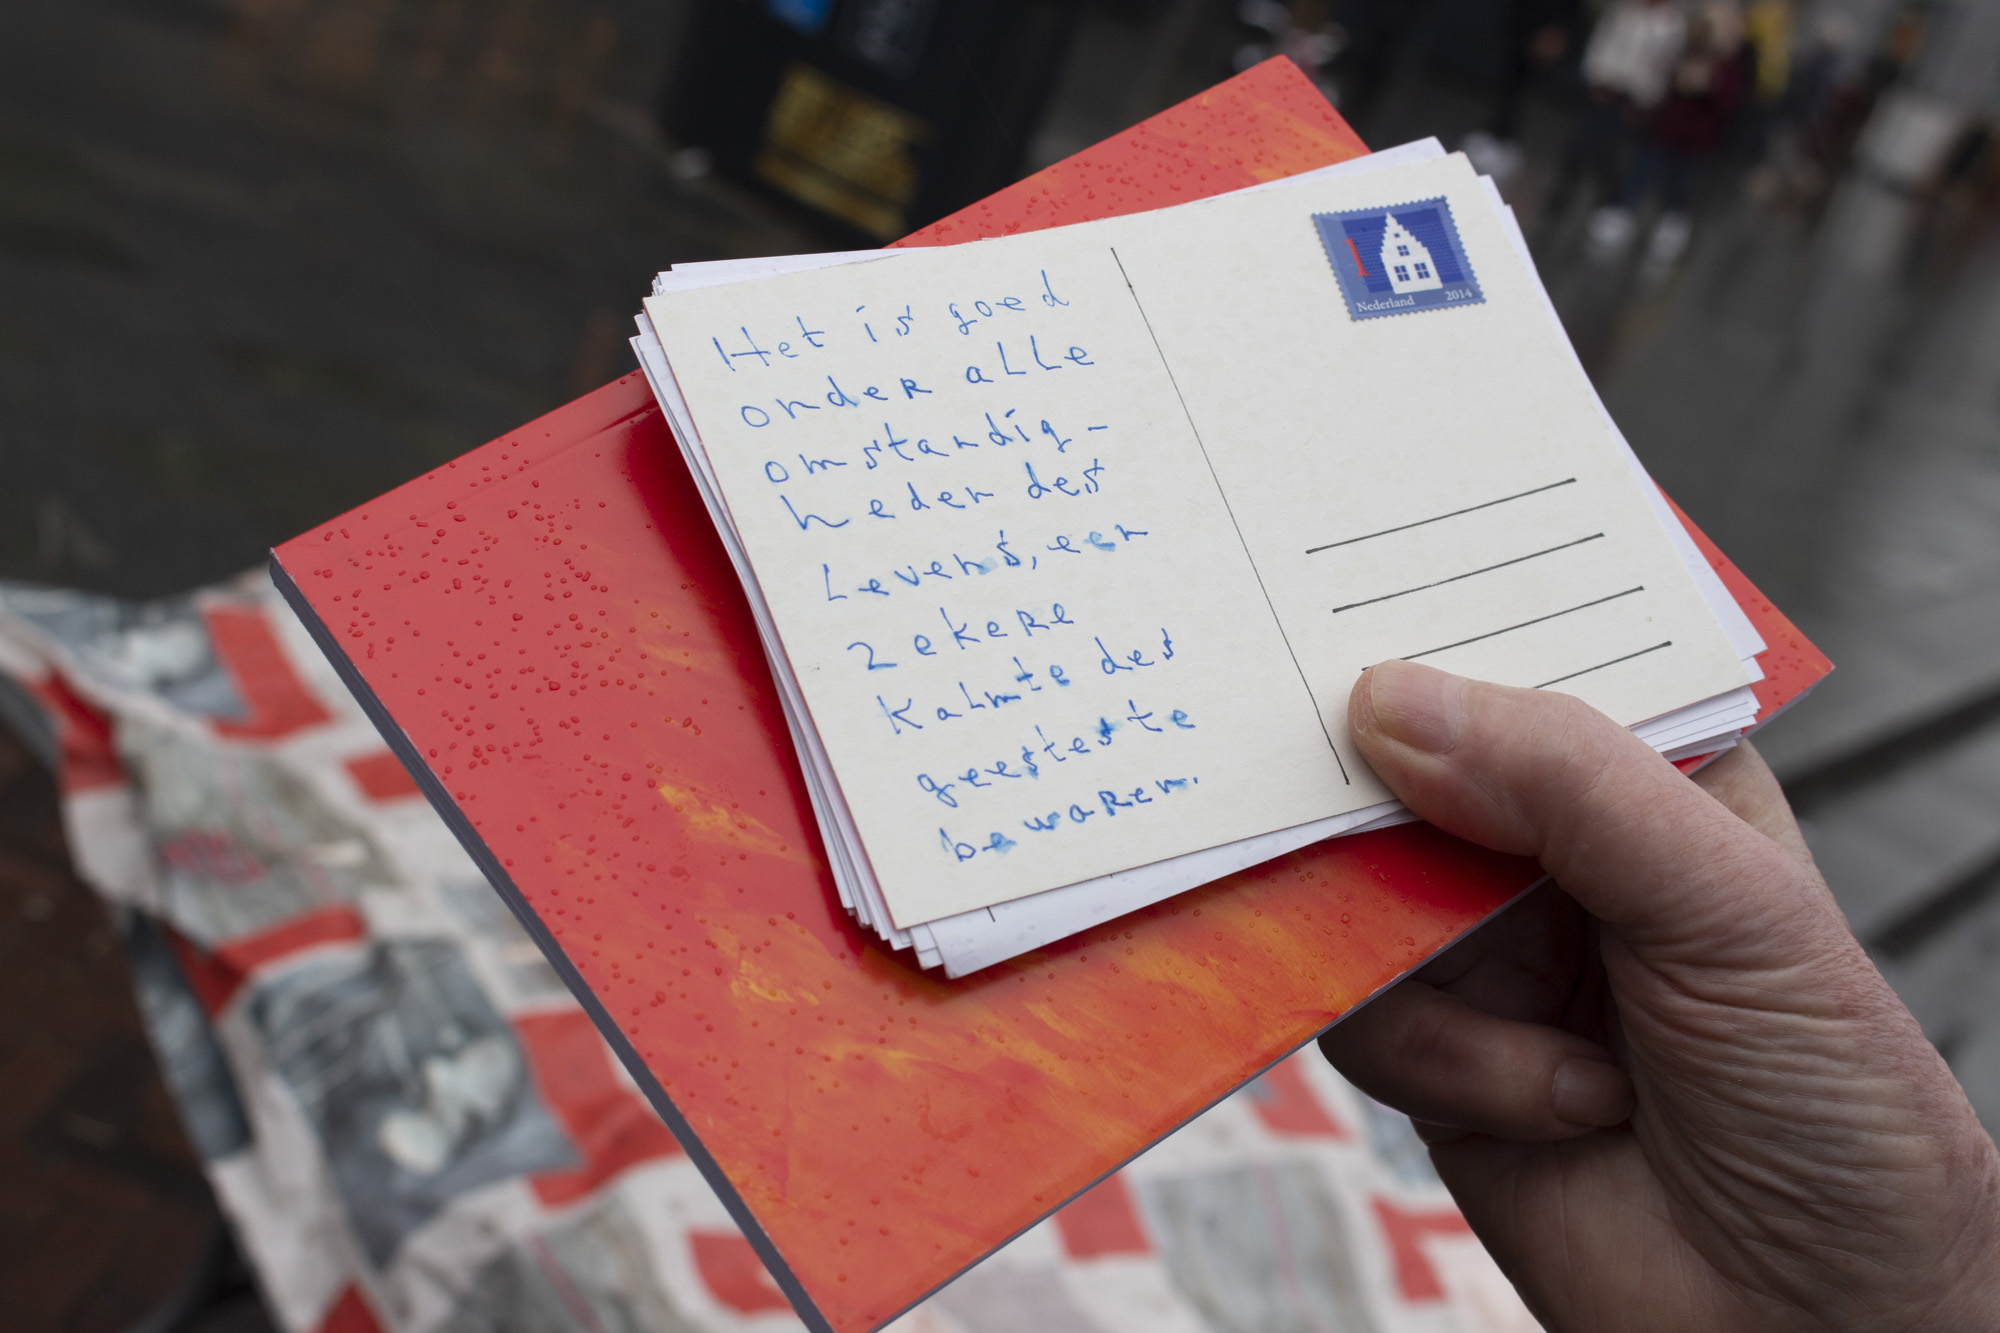 Het is goed
onder alle
omstandig-
heden des
Levens, een
zekere
Kalmte des
geestes te
bewaren.
1
Nederland 2014